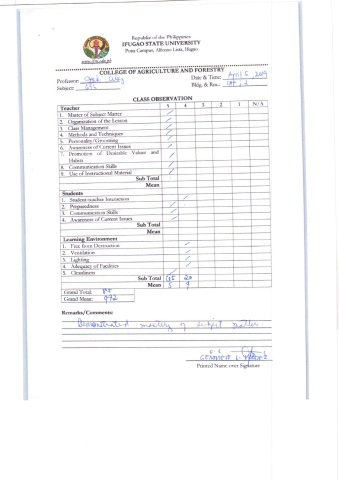 Republic of the Philippines
IFUGAO STATE UNIVERSITY
Potia Campus, Alfonso Lista, Ifugao
COLLEGE OF AGRICULTURE AND FORESTRY
Professor:
Date & Time: April 6, 2019
Subject:
Bldg. & Rm.:
CLASS OBSERVATION
Teacher 5 4 3 2 1 N/A
1. Master of Subject Matter /
2. Organization of the Lesson /
3. Class Management /
4. Methods and Techniques /
5. Personality/Grooming /
6. Awareness of Current Issues /
7. Promotion of Desirable Values and Habits /
8. Communication Skills /
9. Use of Instructional Material /
Sub Total
Mean
Students
1. Student-teacher Interaction /
2. Preparedness /
3. Communication Skills /
4. Awareness of Current Issues /
Sub Total
Mean
Learning Environment
1. Free from Destruction /
2. Ventilation /
3. Lighting /
4. Adequacy of Facilities /
5. Cleanliness /
Sub Total 20
Mean 5 4
Grand Total:
Grand Mean:
Remarks/Comments:
Demonstrated mastery of subject matter
Printed Name over Signature